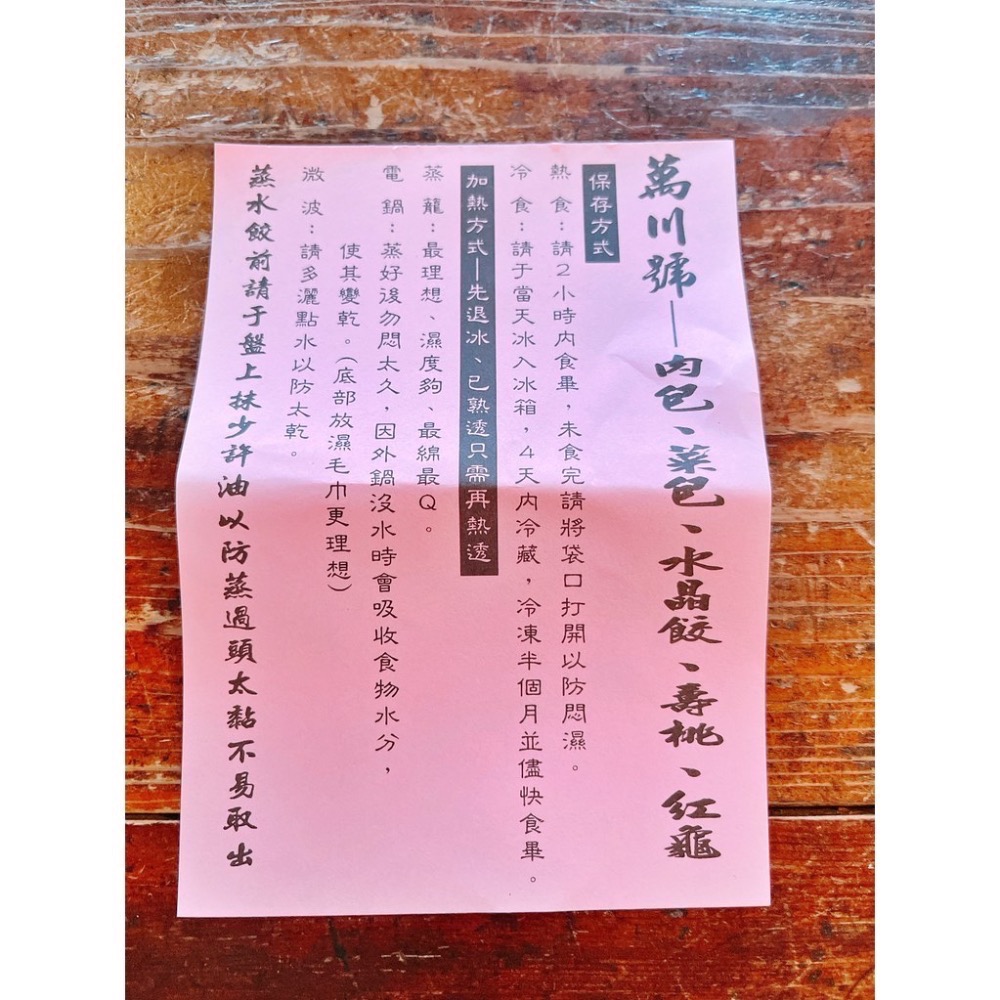 萬川號—肉包、菜包、水晶餃、壽桃、紅龜
保存方式
熱食：請2小時內食畢，未食完請將袋口打開以防悶濕。
冷食：請于當天冰入冰箱，4天內冷藏，冷凍半個月並儘快食畢。
加熱方式—先退冰、已熟透只需再熱透
蒸籠：最理想、濕度夠、最綿最Q。
電鍋：蒸好後勿悶太久，因外鍋沒水時會吸收食物水分，
使其變乾。（底部放濕毛巾更理想）
微波：請多灑點水以防太乾。
蒸水餃前請于盤上抹少許油以防蒸過頭太黏不易取出